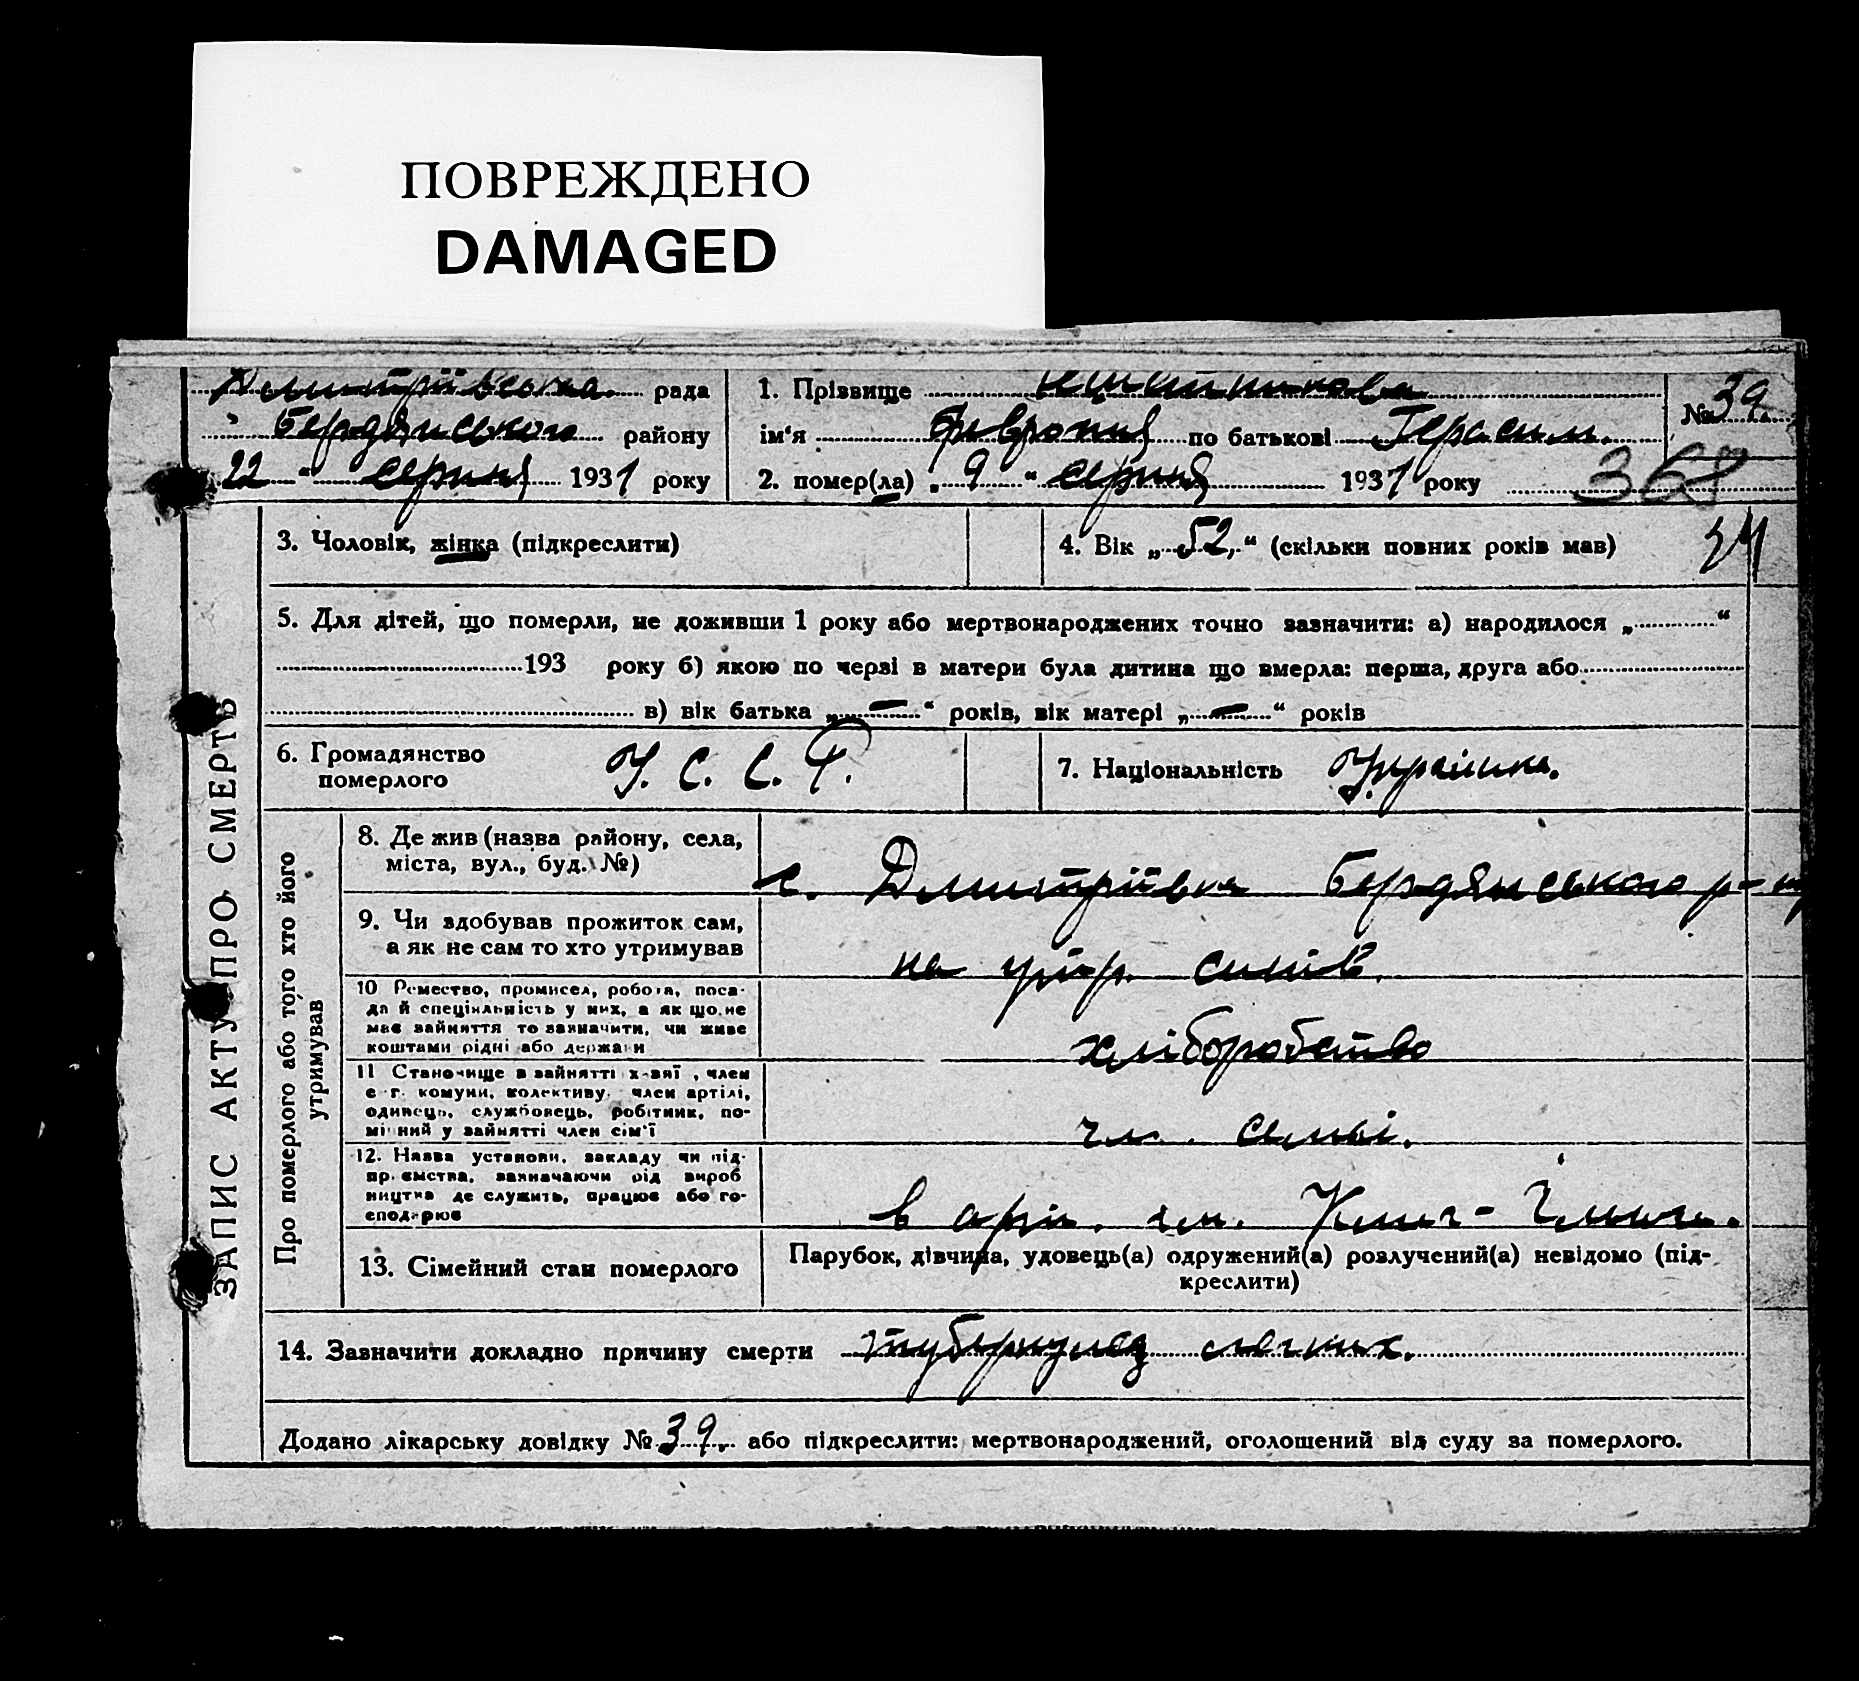 ПОВРЕЖДЕНО
DAMAGED
Дмитріївська рада
Бердянського району
22 “ серпня 1931 року
1. Прізвище
ім‘я Февронія по батькові Герасим.
2. помер(ла) „ 9 “ серпня 1931 року
№ 39
368
ЗАПИС АКТУ ПРО СМЕРТЬ
3. Чоловік, жінка (підкреслити)
4. Вік „ 52 “ (скільки повних років мав)
5. Для дітей, що померли, не доживши 1 року або мертвонароджених точно зазначити: а) народилося „ “
193 року б) якою по черзі в матери була дитина що вмерла: перша, друга або
в) вік батька „ — “ років, вік матері „ — “ років
6. Громадянство
померлого
У. С. С. Р.
7. Національність Українка.
Про померлого або того хто його
утримував
8. Де жив (назва району, села,
міста, вул., буд. №)
с. Дмитріївка Бердянського р-ну
9. Чи здобував прожиток сам,
а як не сам то хто утримував
на утр. синів
10 Ремество, промисел, робота, поса-
да й спеціяльність у них, а як що не
має зайняття то зазначити, чи живе
коштами рідні або держави
хліборобство
11 Становище в зайнятті х-зяї , член
с г. комуни, колективу, член артілі,
одинець, службовець, робітник, по-
мічний у зайнятті член сім‘ї
чл. семьі.
12. Назва установи, закладу чи під-
приємства, зазначаючи рід вироб
ництва де служить, працює або го-
сподарює
в арт. ім.
13. Сімейний стан померлого
Парубок, дівчина, удовець(а) одружений(а) розлучений(а) невідомо (під-
креслити)
14. Зазначити докладно причину смерти туберкулез легких.
Додано лікарську довідку № 39 або підкреслити: мертвонароджений, оголошений від суду за померлого.